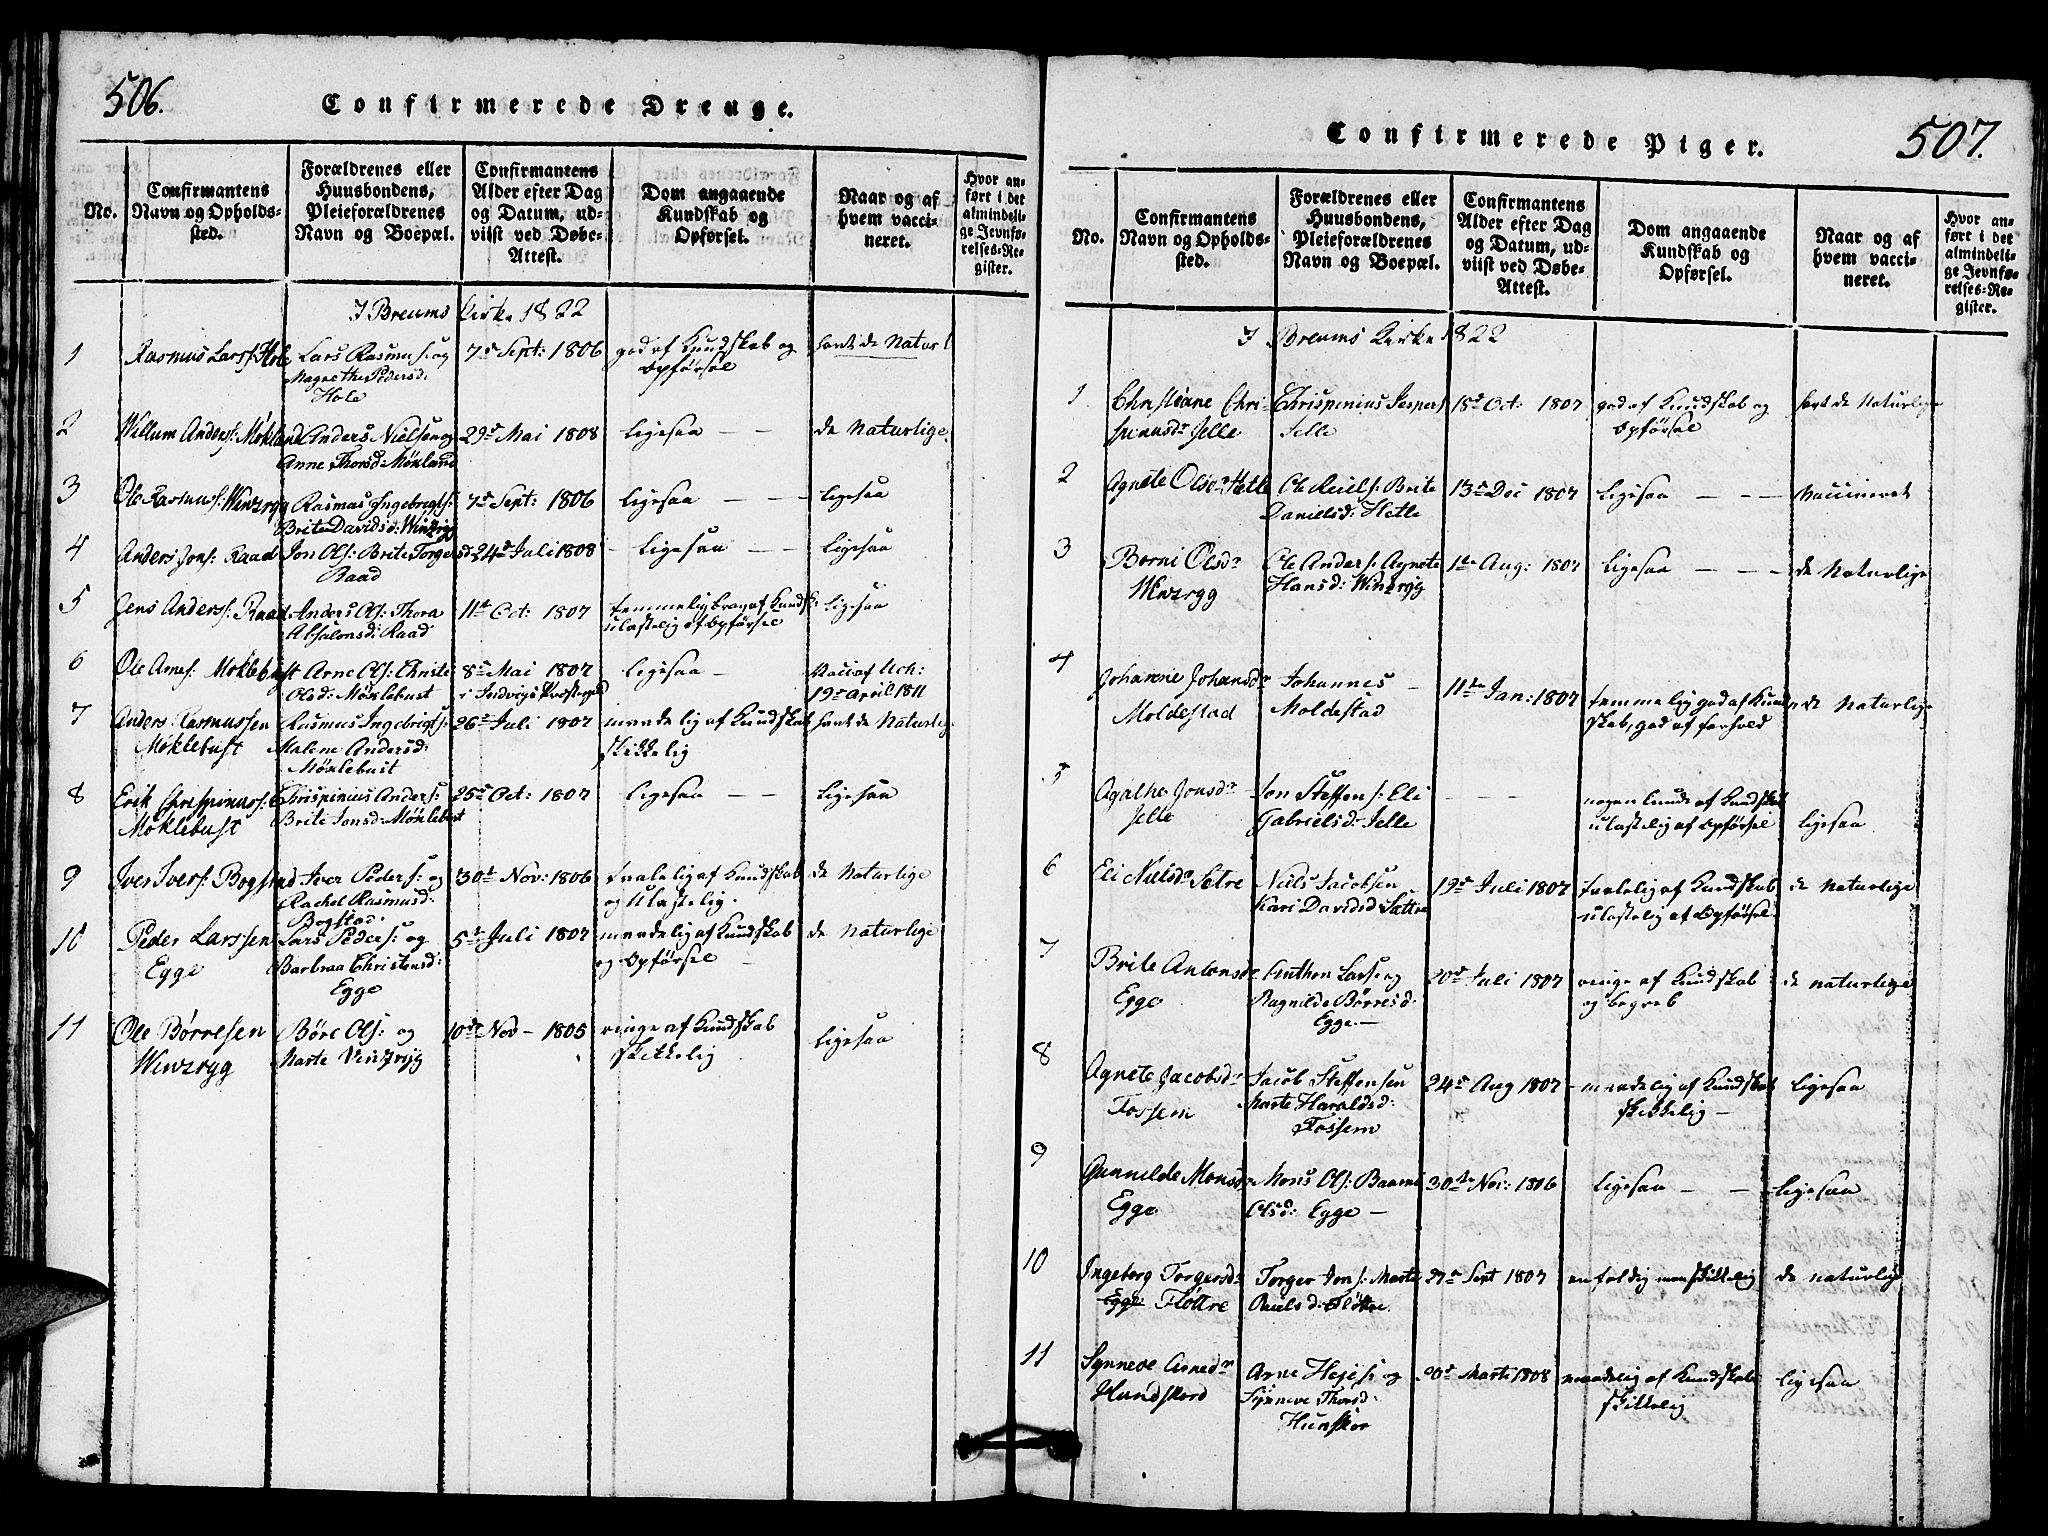 506.
Confirmerede Drenge.
No.
Confirmantens
Navn og Opholds-
sted.
Forældrenes eller
Huusbondens,
Pleieforældrenes
Navn og Boepæl.
Confirmantens
Alder efter Dag
og Datum, ud-
viist ved Døbe-
Attest.
Dom angaaende
Kundskab og
Opførsel.
Naar og af
hvem vacci-
neret.
Hvor an-
ført i det
almindeli-
ge Jevnfø-
relses-Re-
gister.
I Breums Kirke 1822
1
Rasmus Lars: Hole
Lars Rasmus: og
Magrethe Pedersd:
Hole
7d Sept: 1806
god af Kundskab og
Opførsel
havt de Naturl
2
Willum Anders: Møkland
Anders Nielsen og
Anne Thorsd: Møkland
29d Mai 1808
ligesaa
de Naturlige
3
Ole Rasmus: Winzrygg
Rasmus Ingebrigts:
Brite Davidsd: Winzryg
7d Sept: 1806
ligesaa - -
ligesaa
4
Anders Jons: Raad
Jon Ols: Brite Torgersd
Raad
24d Juli 1808
- ligesaa - -
ligesaa
5
Jens Anders: Raad
Anders Ols: Thora
Absalonsd: Raad
11te Oct: 1807
temmelig brav af Kundsk:
ulastelig af Opførsel
ligesaa
6
Ole Arnes: Moklebust
Arne Ols: Christi
Olsd: Møklebust
8d Mai 1807
i Indvigs Præstegield
ligesaa -
Vacc: af
19d April 1811
7
Anders Rasmussen
Møklebust
Rasmus Ingebrigts:
Malene Andersd:
Møklebust
26d Juli 1807
maadelig af Kundskab
skikkelig
havt de Naturlig
8
Erik Chrispinus:
Møklebust
Chrispinius Anders:
Brite Jonsd: Møklebust
25d Oct: 1807
ligesaa - -
ligesaa
9
Iver Ivers: Bogstad
Iver Peders: og
Rachel Rasmusd:
Bogstad:
30te Nov: 1806
taalelig af Kundskab
og Ulastelig.
de Naturlige
10
Peder Larssen
Egge
Lars Peders: og
Barbraa Christensd:
Egge
5te Juli 1807
maadelig af Kundskab
og Opførsel
de Naturlige
11
Ole Børresen
Winzryg
Børe Ols: og
Marte Venzrygg
10de Nov - 1805
ringe af Kundskab
skikkelig
ligesaa
507.
Confirmerede Piger.
No.
Confirmantens
Navn og Opholds-
sted.
Forældrenes eller
Huusbondens,
Pleieforældrenes
Navn og Boepæl.
Confirmantens
Alder efter Dag
og Datum, ud-
viist ved Døbe-
Attest.
Dom angaaende
Kundskab og
Opførsel.
Naar og af
hvem vacci-
neret.
Hvor an-
ført i det
almindeli-
ge Jevnfø-
relses-Re-
gister.
I Breums Kirke 1822
1
Christiane Chri-
spinusdr Jelle
Chrispinius Jespers
Jelle
18d Oct: 1807
god af Kundskab og
Opførsel
havt de Naturlige
2
Agnete Olsdr Hetle
Ole Reiels: Brite
Danielsd: Hetle
13d Dec 1807
ligesaa - - -
Vaccineret
3
Borni Olsdr
Winzrygg
Ole Anders: Agnete
Hansd: Winzryg
1te Aug: 1807
ligesaa - - -
de Naturlige
4
Johanne Johansdr
Moldestad
Johannes -
Moldestad
11te Jan: 1807
temmelig god af Kund-
skab, god af forhold
de Naturlige
5
Agathe Jonsdr
Jelle
Jon Steffens: Eli
Gabrielsd: Jelle
- - -
nogenlunde af Kundskab
ulastelig af Opførsel
ligesaa
6
Eli Nielsdr Sætre
Niels Jacobsen
Kari Davidsd: Sættre
19d Juli 1807
taalelig af Kundskab
ulastelig af Opførsel
de Naturlige
7
Brite Antonsdr
Egge
Anthon Lars: og
Ragnilde Børresd:
Egge. -
20d Juli 1807
ringe af Kundskab
og begreb
de naturlige
8
Agnete Jacobsdr
Fossem
Jacob Steffensen
Marte Haraldsd:
Fossem
24d Aug 1807
- maadelig af Kundskab
skikkelig -
ligesaa
9
Gunnilde Monsdr
Egge
Mons Ols: Baarni
Olsd: Egge -
30te Nov: 1806
ligesaa - -
ligesaa
10
Ingeborg Torgersdr
Egge Fløttre
Torger Jons: Marte
Fløttre
27d Sept 1807
enfoldig men skikkelig
de naturlige
11
Synneve Arnedr
Hundskord
Arne Hejes: og
Synneve Thorsd:
Hunskor
20d Marti 1808
maadelig af Kundskab
skikkelig
ligesaa